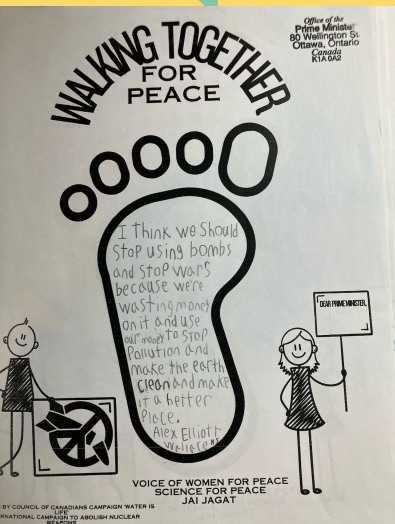 Office of the
Prime Minister
80 Wellington St
Ottawa, Ontario
Canada
K1A 0A2
WALKING TOGETHER
FOR
PEACE
I think we should
stop using bombs
and stop wars
because we're
wasting money
on it and use
our money to stop
Pollution and
make the earth
clean and make
it a better
Place.
Alex Elliott
DEAR PRIME MINISTER,
VOICE OF WOMEN FOR PEACE
SCIENCE FOR PEACE
JAI JAGAT
BY COUNCIL OF CANADIANS CAMPAIGN WATER IS
LIFE
RNATIONAL CAMPAIGN TO ABOLISH NUCLEAR
WEAPONS